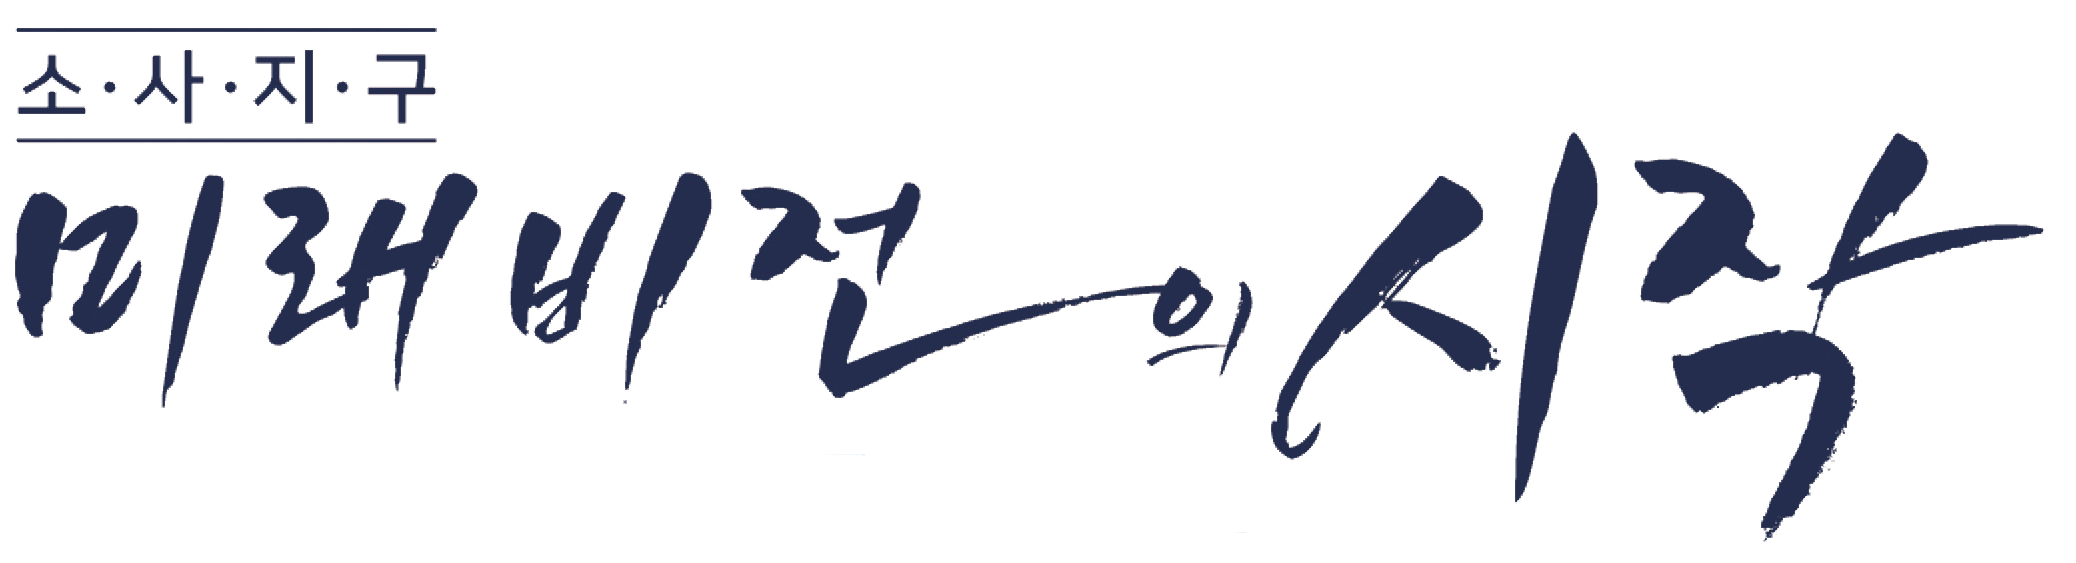 소·사·지·구
미래비전의 시작